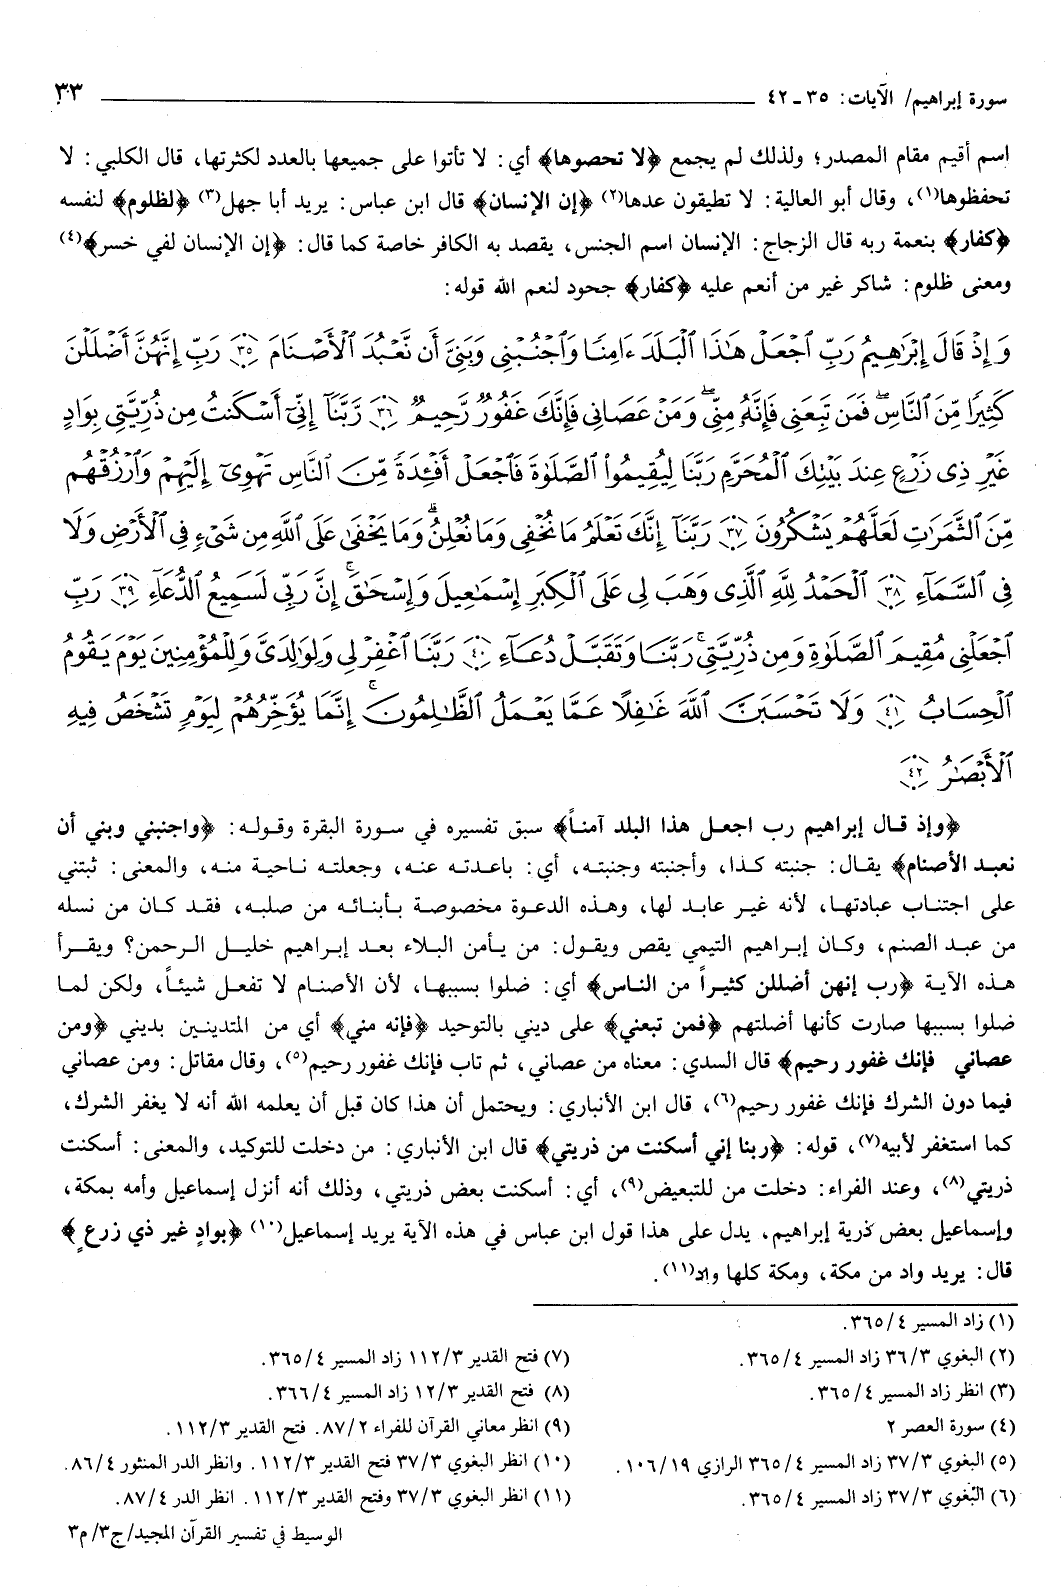 سورة إبراهيم/ الآيات: ٣٥ ـ ٤٢
٣٣
اسم أقيم مقام المصدر؛ ولذلك لم يجمع ﴿لا تحصوها﴾ أي: لا تأتوا على جميعها بالعدد لكثرتها، قال الكلبي: لا
تحفظوها(١)، وقال أبو العالية: لا تطيقون عدها(٢) ﴿إن الإنسان﴾ قال ابن عباس: يريد أبا جهل(٣) ﴿لظلوم﴾ لنفسه
﴿كفار﴾ بنعمة ربه قال الزجاج: الإنسان اسم الجنس، يقصد به الكافر خاصة كما قال: ﴿إن الإنسان لفي خسر﴾(٤)
ومعنى ظلوم: شاكر غير من أنعم عليه ﴿كفار﴾ جحود لنعم الله قوله:
وَإِذْ قَالَ إِبْرَٰهِيمُ رَبِّ ٱجْعَلْ هَٰذَا ٱلْبَلَدَ ءَامِنًا وَٱجْنُبْنِى وَبَنِىَّ أَن نَّعْبُدَ ٱلْأَصْنَامَ ٣٥ رَبِّ إِنَّهُنَّ أَضْلَلْنَ
كَثِيرًا مِّنَ ٱلنَّاسِ ۖ فَمَن تَبِعَنِى فَإِنَّهُۥ مِنِّى ۖ وَمَنْ عَصَانِى فَإِنَّكَ غَفُورٌ رَّحِيمٌ ٣٦ رَّبَّنَآ إِنِّىٓ أَسْكَنتُ مِن ذُرِّيَّتِى بِوَادٍ
غَيْرِ ذِى زَرْعٍ عِندَ بَيْتِكَ ٱلْمُحَرَّمِ رَبَّنَا لِيُقِيمُوا۟ ٱلصَّلَوٰةَ فَٱجْعَلْ أَفْـِٔدَةً مِّنَ ٱلنَّاسِ تَهْوِىٓ إِلَيْهِمْ وَٱرْزُقْهُم
مِّنَ ٱلثَّمَرَٰتِ لَعَلَّهُمْ يَشْكُرُونَ ٣٧ رَبَّنَآ إِنَّكَ تَعْلَمُ مَا نُخْفِى وَمَا نُعْلِنُ ۗ وَمَا يَخْفَىٰ عَلَى ٱللَّهِ مِن شَىْءٍ فِى ٱلْأَرْضِ وَلَا
فِى ٱلسَّمَآءِ ٣٨ ٱلْحَمْدُ لِلَّهِ ٱلَّذِى وَهَبَ لِى عَلَى ٱلْكِبَرِ إِسْمَٰعِيلَ وَإِسْحَٰقَ ۚ إِنَّ رَبِّى لَسَمِيعُ ٱلدُّعَآءِ ٣٩ رَبِّ
ٱجْعَلْنِى مُقِيمَ ٱلصَّلَوٰةِ وَمِن ذُرِّيَّتِى ۚ رَبَّنَا وَتَقَبَّلْ دُعَآءِ ٤٠ رَبَّنَا ٱغْفِرْ لِى وَلِوَٰلِدَىَّ وَلِلْمُؤْمِنِينَ يَوْمَ يَقُومُ
ٱلْحِسَابُ ٤١ وَلَا تَحْسَبَنَّ ٱللَّهَ غَٰفِلًا عَمَّا يَعْمَلُ ٱلظَّٰلِمُونَ ۚ إِنَّمَا يُؤَخِّرُهُمْ لِيَوْمٍ تَشْخَصُ فِيهِ
ٱلْأَبْصَٰرُ ٤٢
﴿وإذ قال إبراهيم رب اجعل هذا البلد آمناً﴾ سبق تفسيره في سورة البقرة وقوله: ﴿واجنبني وبني أن
نعبد الأصنام﴾ يقال: جنبته كذا، وأجنبته وجنبته، أي: باعدته عنه، وجعلته ناحية منه، والمعنى: ثبتني
على اجتناب عبادتها، لأنه غير عابد لها، وهذه الدعوة مخصوصة بأبنائه من صلبه، فقد كان من نسله
من عبد الصنم، وكان إبراهيم التيمي يقص ويقول: من يأمن البلاء بعد إبراهيم خليل الرحمن؟ ويقرأ
هذه الآية ﴿رب إنهن أضللن كثيراً من الناس﴾ أي: ضلوا بسببها، لأن الأصنام لا تفعل شيئاً، ولكن لما
ضلوا بسببها صارت كأنها أضلتهم ﴿فمن تبعني﴾ على ديني بالتوحيد ﴿فإنه مني﴾ أي من المتدينين بديني ﴿ومن
عصاني فإنك غفور رحيم﴾ قال السدي: معناه من عصاني، ثم تاب فإنك غفور رحيم(٥)، وقال مقاتل: ومن عصاني
فيما دون الشرك فإنك غفور رحيم(٦)، قال ابن الأنباري: ويحتمل أن هذا كان قبل أن يعلمه الله أنه لا يغفر الشرك،
كما استغفر لأبيه(٧)، قوله: ﴿ربنا إني أسكنت من ذريتي﴾ قال ابن الأنباري: من دخلت للتوكيد، والمعنى: أسكنت
ذريتي(٨)، وعند الفراء: دخلت من للتبعيض(٩)، أي: أسكنت بعض ذريتي، وذلك أنه أنزل إسماعيل وأمه بمكة،
وإسماعيل بعض ذرية إبراهيم، يدل على هذا قول ابن عباس في هذه الآية يريد إسماعيل(١٠) ﴿بوادٍ غير ذي زرعٍ﴾
قال: يريد واد من مكة، ومكة كلها واد(١١).
(١) زاد المسير ٤/٣٦٥.
(٢) البغوي ٣/٣٦ زاد المسير ٤/٣٦٥.
(٣) انظر زاد المسير ٤/٣٦٥.
(٤) سورة العصر ٢
(٥) البغوي ٣/٣٧ زاد المسير ٤/٣٦٥ الرازي ١٩/١٠٦.
(٦) البغوي ٣/٣٧ زاد المسير ٤/٣٦٥.
(٧) فتح القدير ٣/١١٢ زاد المسير ٤/٣٦٥.
(٨) فتح القدير ٣/١٢ زاد المسير ٤/٣٦٦.
(٩) انظر معاني القرآن للفراء ٢/٨٧. فتح القدير ٣/١١٢.
(١٠) انظر البغوي ٣/٣٧ فتح القدير ٣/١١٢. وانظر الدر المنثور ٤/٨٦.
(١١) انظر البغوي ٣/٣٧ وفتح القدير ٣/١١٢. انظر الدر ٤/٨٧.
الوسيط في تفسير القرآن المجيد/ج٣/م٣